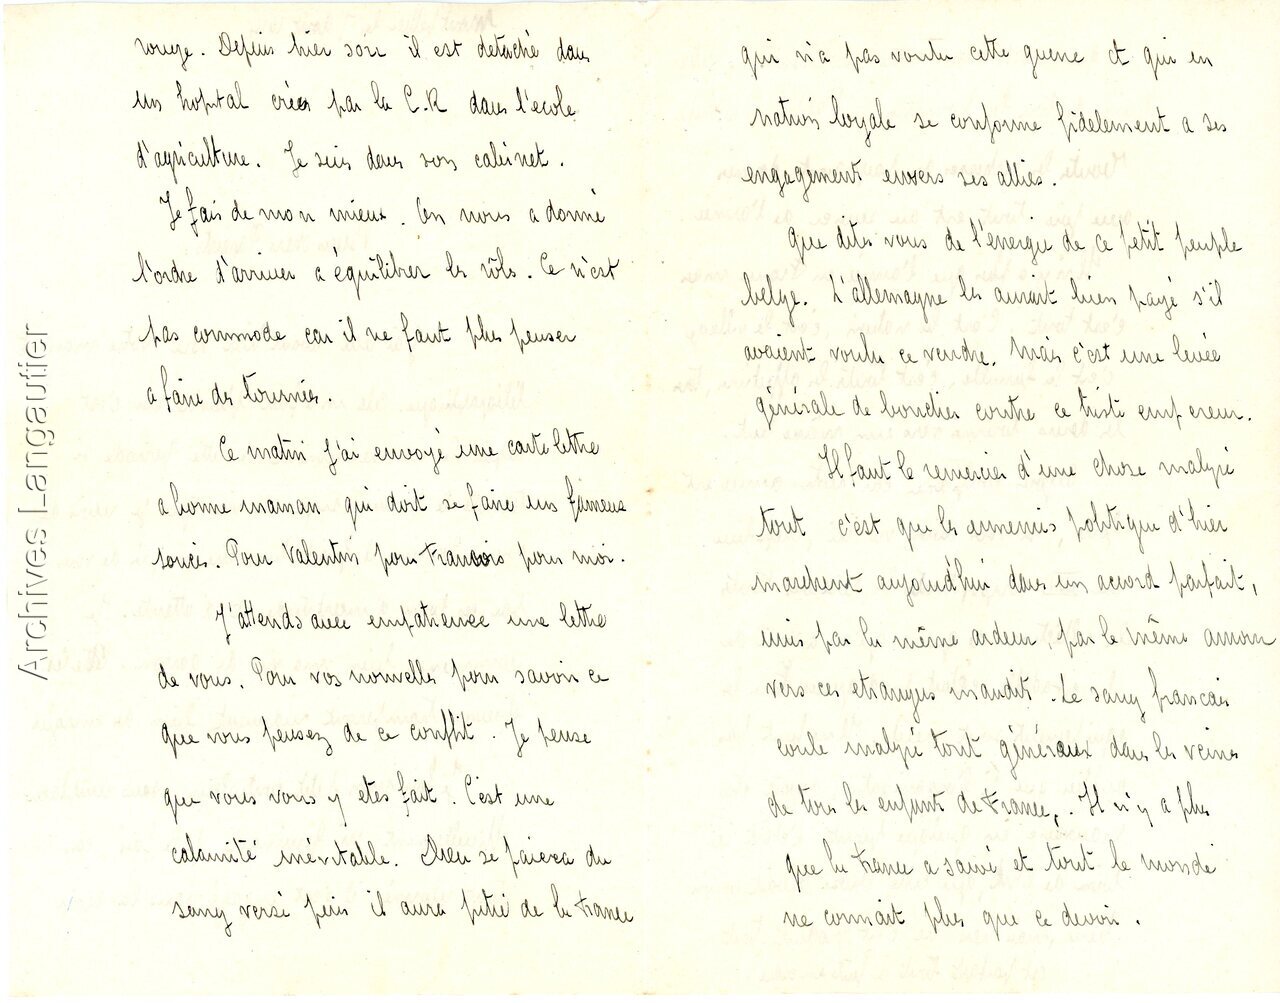 rouge. Depuis hier soir il est detaché dans
un hopital créer par la C.R dans l'ecole
d'agriculture. Je suis dans son cabinet.
Je fais de mon mieux. On nous a donné
l'ordre d'arriver a équilibrer les rôls. Ce n'est
pas commode car il ne faut plus penser
a faire des tournées.
Ce matin j'ai envoyé une carte lettre
a bonne maman qui doit se faire un fameux
soucis. Pour Valentin pour Francois pour moi.
J'attends avec empatience une lettre
de vous. Pour vos nouvelles pour savoir ce
que vous pensez de ce conflit. Je pense
que vous vous y etes fait. C'est une
calamité inévitable. Dieu se paiera du
sang versé puis il aura pitié de la France
qui n'a pas voulu cette guerre et qui en
nation loyale se conforme fidelement a ses
engagements envers ses alliés.
Que dites vous de l'energie de ce petit peuple
belge. L'allemagne les aurait bien payé s'il
avaient voulu ce vendre. Mais c'est une levée
générale de bouclier contre ce triste empereur.
Il faut le remercier d'une chose malgré
tout c'est que les ennemis politique d'hier
marchent aujourd'hui dans un accord parfait,
unis par la même ardeur, par le même amour
vers ces etrangers maudits. Le sang francais
coule malgré tout généraux dans les veines
de tous les enfants de France,. Il n'y a plus
que la France a sauvé et tout le monde
ne connait plus que ce devoir.
Archives Langautier